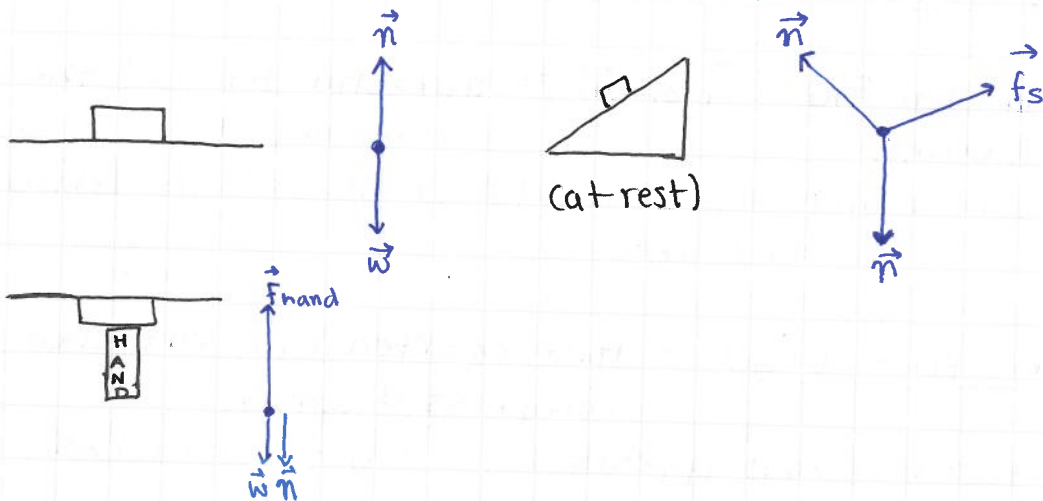 n⃗
w⃗
(at rest)
n⃗
f⃗s
n⃗
F⃗hand
HAND
w⃗ n⃗